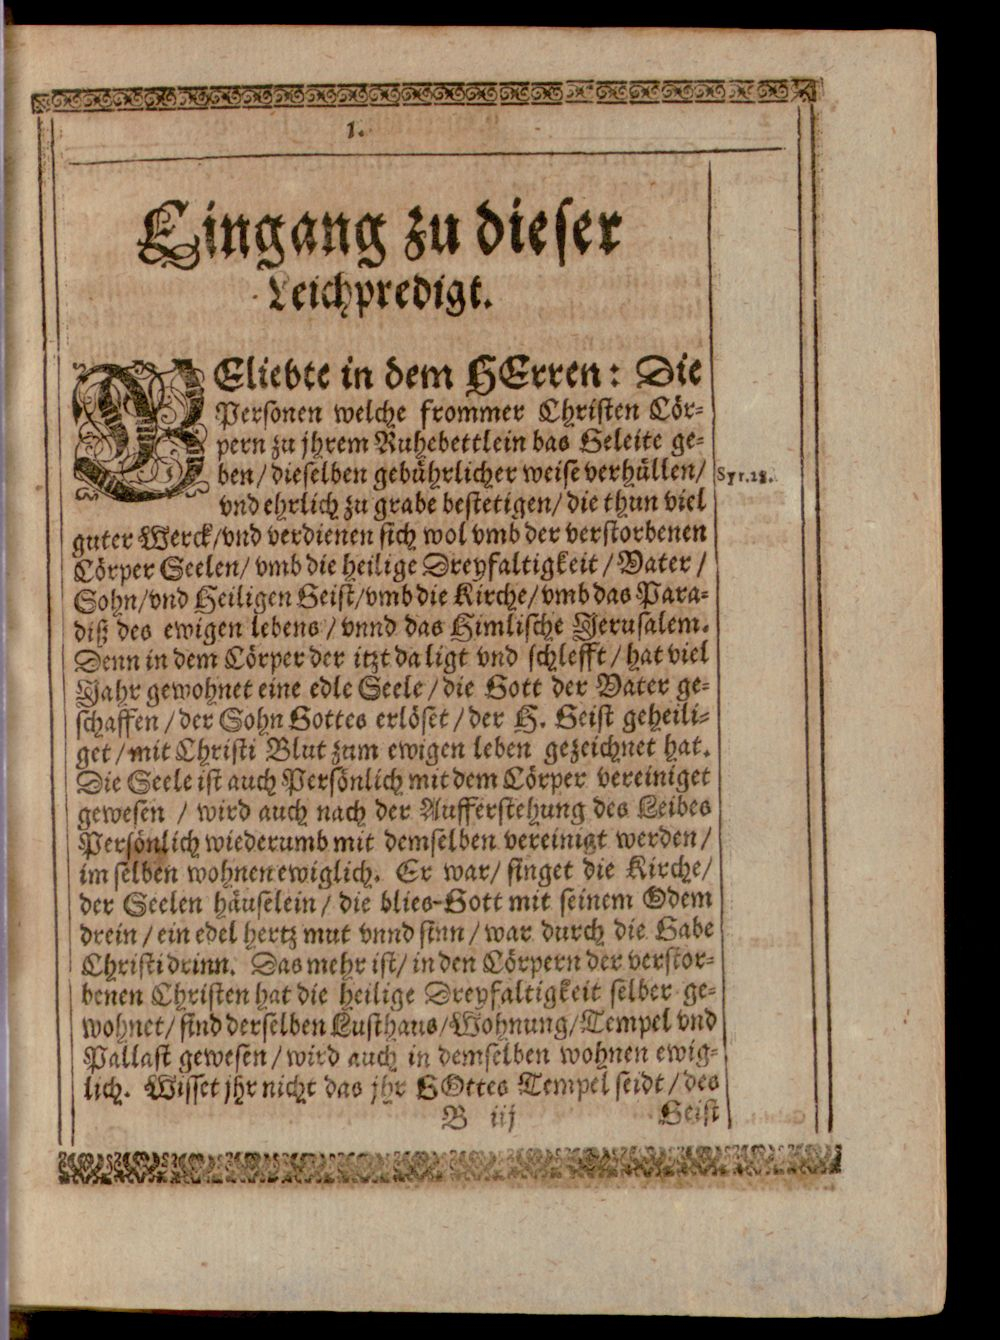 1.
Eingang zu dieser
Leichpredigt.
GEliebte in dem HErren: Die
Personen welche frommer Christen Cör-
pern zu jhrem Ruhebettlein das Geleite ge-
ben/ dieselben gebührlicher weise verhüllen/
Syr.
vnd ehrlich zu grabe bestetigen/ die thun viel
guter Werck/ vnd verdienen sich wol vmb der verstorbenen
Cörper Seelen/ vmb die heilige Dreyfaltigkeit/ Vater/
Sohn/ vnd Heiligen Geist/ vmb die Kirche/ vmb das Para-
diß des ewigen lebens/ vnnd das Himlische Jerusalem.
Denn in dem Cörper der itzt da ligt vnd schlefft/ hat viel
Jahr gewohnet eine edle Seele/ die Gott der Vater ge-
schaffen/ der Sohn Gottes erlöset/ der H. Geist geheili-
get/ mit Christi Blut zum ewigen leben gezeichnet hat.
Die Seele ist auch Persönlich mit dem Cörper vereiniget
gewesen/ wird auch nach der Aufferstehung des Leibes
Persönlich wiederumb mit demselben vereinigt werden/
im selben wohnen ewiglich. Er war/ singet die Kirche/
der Seelen häuselein/ die blies Gott mit seinem Odem
drein/ ein edel hertz mut vnnd sinn/ war durch die Gabe
Christi drinn. Das mehr ist/ in den Cörpern der verstor-
benen Christen hat die heilige Dreyfaltigkeit selber ge-
wohnet/ sind derselben Lusthaus/ Wohnung/ Tempel vnd
Pallast gewesen/ wird auch in demselben wohnen ewig-
lich. Wisset jhr nicht das jhr GOttes Tempel seidt/ des
B iij
Geist